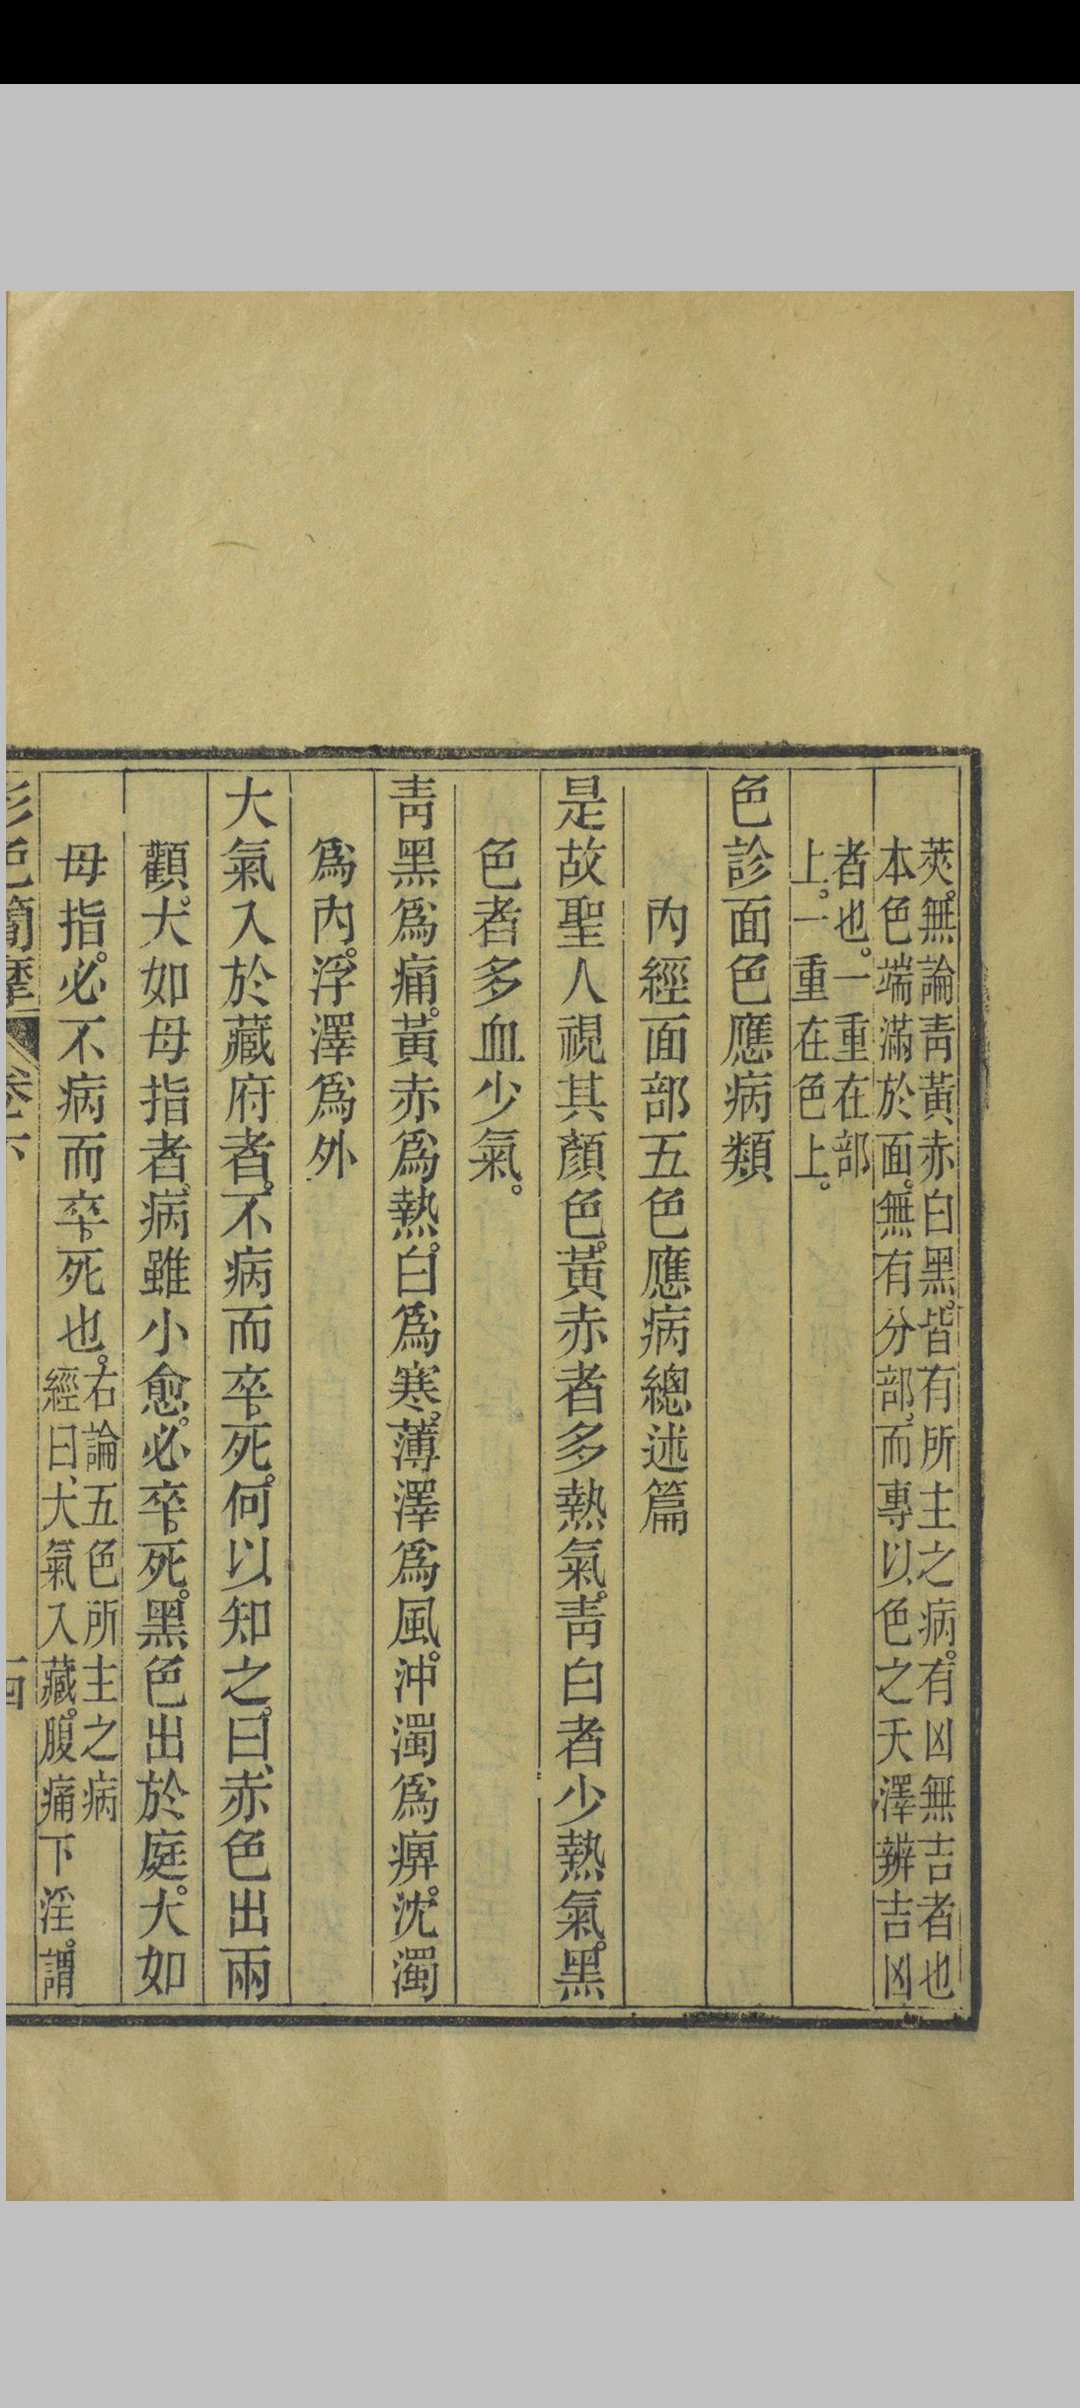 莢。無論青黃赤白黑。皆有所主之病。有凶無吉者也
本色端滿於面。無有分部、而專以色之夭澤辨吉凶
者也。一重在部
上。一重在色上。
色診面色應病類
內經面部五色應病總述篇
是故聖人視其顏色。黃赤者多熱氣。青白者少熱氣。黑
色者多血少氣。
青黑爲痛。黃赤爲熱。白爲寒。薄澤爲風。沖濁爲痹。沈濁
爲內。浮澤爲外
大氣入於藏府者。不病而卒死。何以知之。曰、赤色出兩
顴。大如母指者、病雖小愈。必卒死。黑色出於庭。大如
母指。必不病而卒死也。
右論五色所主之病
經曰、大氣入藏。腹痛下淫。謂
形色簡摩 卷下